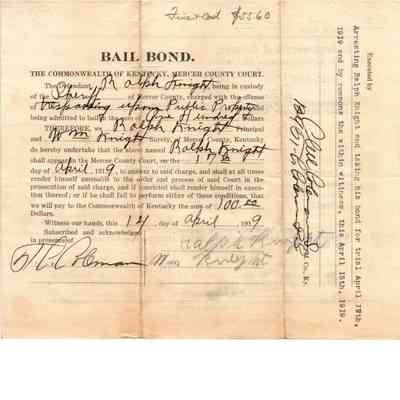 Fine & Cost $55.60
BAIL BOND.
THE COMMONWEALTH OF KENTUCKY, MERCER COUNTY COURT.
The Defendant, Ralph Knight being in custody
of the Sheriff of Mercer County, charged with the offense
of trespassing upon Public Property
being admitted to bail in the sum of One Hundred Dollars
THEREFORE, we Ralph Knight Principal
and Wm Knight Surety, of Mercer County, Kentucky
do hereby undertake that the above named Ralph Knight
shall appear in the Mercer County Court, on the 17th
day of April 1919, to answer said charge, and shall at all times
render himself amenable to the order and process of said Court in the
prosecution of said charge, and if convicted shall render himself in execu-
tion thereof; or if he shall fail to perform either of these conditions, that
we will pay to the Commonwealth of Kentucky the sum of 100.00
Dollars.
Witness our hands, this 14 day of April 1919
Subscribed and acknowledged
in presence of
Ralph Knight
Wm Knight
Coleman
Executed by
Arresting Ralph Knight and taking his bond for trial April 17th,
1919 and by the within witness, this April 15th, 1919.
Co. Ky.